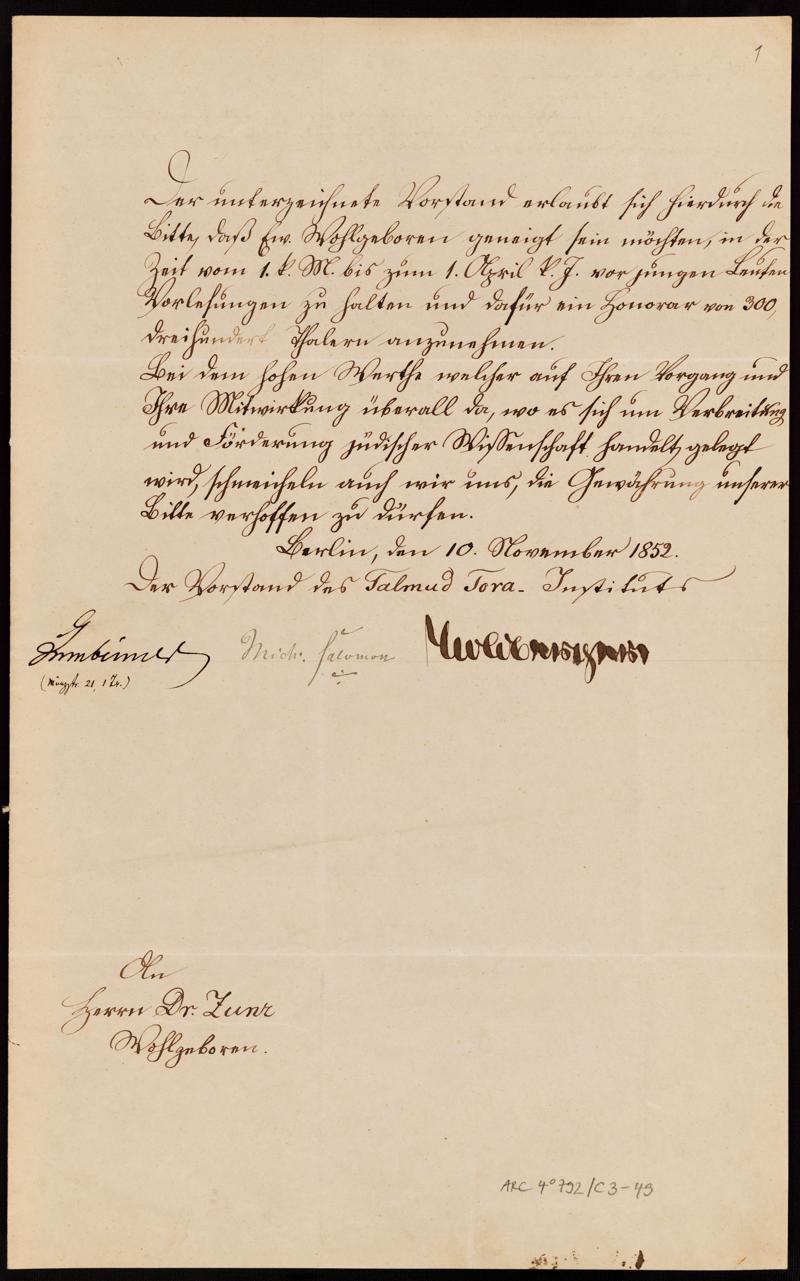 1
Der unterzeichnete Vorstand erlaubt sich hierdurch die
Bitte, daß Ew. Wohlgeboren geneigt sein möchten, in der
Zeit vom 1. k. M. bis zum 1. April k. J. vor jungen Leuten
Vorlesungen zu halten und dafür ein Honorar von 300,
dreihundert Thalern anzunehmen.
Bei dem hohen Werthe welcher auf Ihren Vorgang und
Ihre Mitwirkung überall da, wo es sich um Verbreitung
und Förderung jüdischer Wissenschaft handelt, gelegt
wird, schmeicheln auch wir uns, die Gewährung unserer
Bitte verhoffen zu dürfen.
Berlin, den 10. November 1852.
Der Vorstand des Talmud Tora- Instituts
Mich. Salomon
An
Herrn Dr. Zunz
Wohlgeboren.
ARC 4° 792/C3-49